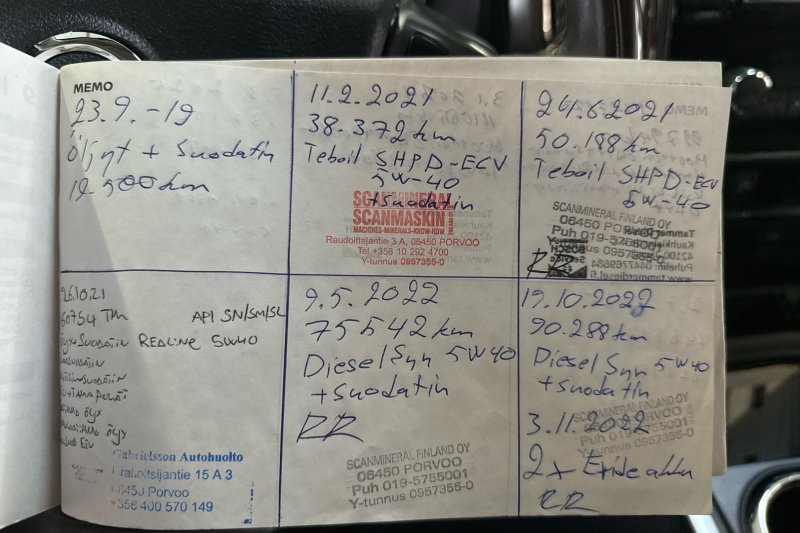 MEMO
23.9.-19
Öljyt + Suodatin
19.500km
11.2.2021
38.372km
Teboil SHPD-ECV
5W-40
+Suodatin
SCANMINERAL
SCANMASKIN
MACHINES-MINERALS-KNOW-HOW
FINLAND OY
Raudoittajantie 3 A, 06450 PORVOO
Tel +358 10 292 4700
Y-tunnus 0957355-0
24.6.2021
50.188km
Teboil SHPD-ECV
5W-40
SCANMINERAL FINLAND OY
06450 PORVOO
Puh 019-5755001
RR
26.10.21
60754 TKM
API SN/SM/SL
REDLINE 5W40
Gabrielsson Autohuolto
Raudoittajantie 15 A 3
06450 Porvoo
+358 400 570 149
9.5.2022
75542km
Diesel Syn 5W40
+Suodatin
RR
SCANMINERAL FINLAND OY
06450 PORVOO
Puh 019-5755001
Y-tunnus 0957355-0
19.10.2022
90.288km
Diesel Syn 5W40
+Suodatin
SCANMINERAL FINLAND OY
06450 PORVOO
Puh 019-5755001
Y-tunnus 0957355-0
3.11.2022
2x Exide akku
RR